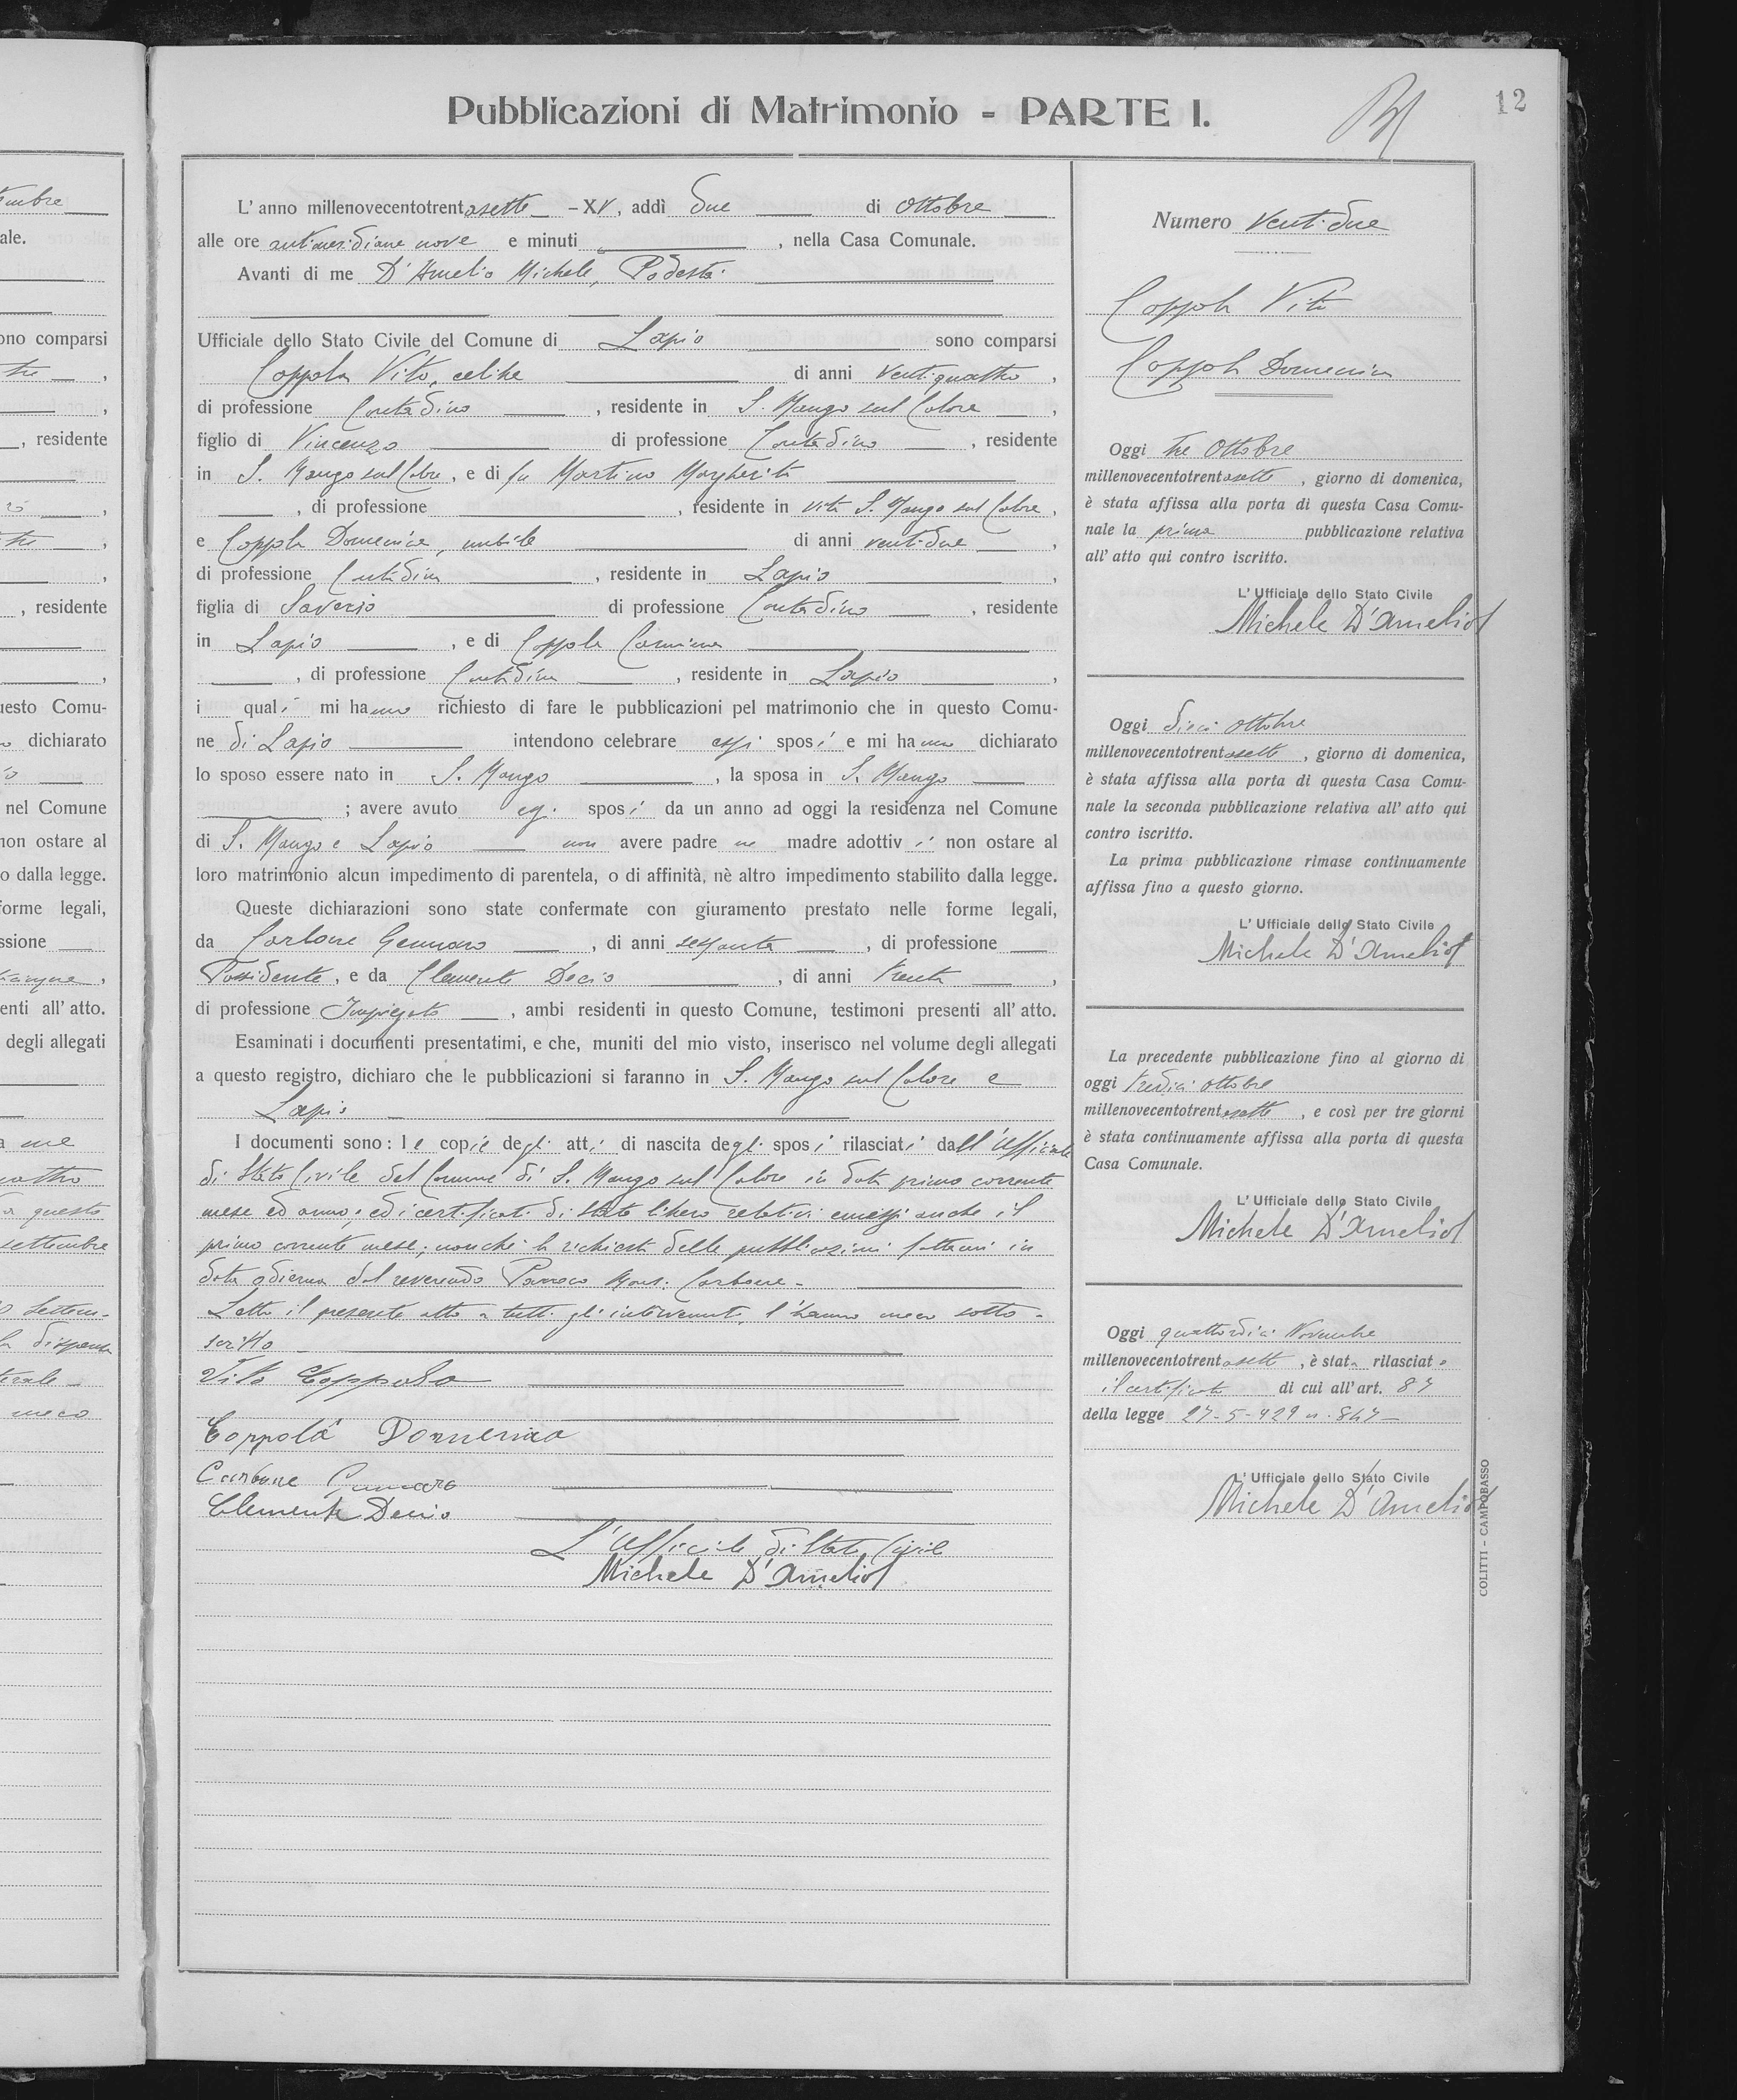 Pubblicazioni di Matrimonio - PARTE I.
12
L' anno millenovecentotrentasette - XV, addì due di ottobre
alle ore antimeridiane nove e minuti , nella Casa Comunale.
Avanti di me D'Amelio Michele, Podestà
Ufficiale dello Stato Civile del Comune di Lapio sono comparsi
Coppola Vito, celibe di anni ventiquattro ,
di professione Contadino , residente in S. Mango sul Calore ,
figlio di Vincenzo di professione Contadino , residente
in S. Mango sul Calore , e di fu Martino Margherita
, di professione , residente in vita S. Mango sul Calore ,
e Coppola Domenica, nubile di anni ventidue ,
di professione Contadina , residente in Lapio ,
figlia di Saverio di professione Contadino , residente
in Lapio , e di Coppola Carmina
, di professione Contadina , residente in Lapio ,
i quali mi hanno richiesto di fare le pubblicazioni pel matrimonio che in questo Comu-
ne di Lapio intendono celebrare essi sposi e mi hanno dichiarato
lo sposo essere nato in S. Mango , la sposa in S. Mango
; avere avuto egi sposi da un anno ad oggi la residenza nel Comune
di S. Mango e Lapio non avere padre ne madre adottivi non ostare al
loro matrimonio alcun impedimento di parentela, o di affinità, nè altro impedimento stabilito dalla legge.
Queste dichiarazioni sono state confermate con giuramento prestato nelle forme legali,
da Carbone Gennaro , di anni sessanta , di professione
Possidente , e da Clemente Decio , di anni trenta ,
di professione Impiegato , ambi residenti in questo Comune, testimoni presenti all' atto.
Esaminati i documenti presentatimi, e che, muniti del mio visto, inserisco nel volume degli allegati
a questo registro, dichiaro che le pubblicazioni si faranno in S. Mango sul Calore e
Lapio
I documenti sono: le copie degli atti di nascita degli sposi rilasciati dall'Ufficiale
di Stato Civile del Comune di S. Mango sul Calore in data primo corrente
mese ed anno; ed i certificati di stato libero relativi emessi anche il
primo corrente mese; nonchè la richiesta delle pubblicazioni fattami in
data odierna dal reverendo Parroco Mons. Carbone -
Letto il presente atto a tutti gli intervenuti, l'hanno meco sotto-
scritto
Vito Coppola
Coppola Domenica
Carbone Gennaro
Clemente Decio
L'Ufficiale di Stato Civile
Michele D'Amelio
Numero Ventidue
Coppola Vito
Coppola Domenica
Oggi tre Ottobre
millenovecentotrentasette , giorno di domenica,
è stata affissa alla porta di questa Casa Comu-
nale la prima pubblicazione relativa
all' atto qui contro iscritto.
L' Ufficiale dello Stato Civile
Michele D'Amelio
Oggi dieci ottobre
millenovecentotrentasette , giorno di domenica,
è stata affissa alla porta di questa Casa Comu-
nale la seconda pubblicazione relativa all' atto qui
contro iscritto.
La prima pubblicazione rimase continuamente
affissa fino a questo giorno.
L' Ufficiale dello Stato Civile
Michele D'Amelio
La precedente pubblicazione fino al giorno di
oggi tredici ottobre
millenovecentotrentasette , e così per tre giorni
è stata continuamente affissa alla porta di questa
Casa Comunale.
L' Ufficiale dello Stato Civile
Michele D'Amelio
Oggi quattordici Novembre
millenovecentotrentasette , è stato rilasciato
il certificato di cui all' art. 87
della legge 27-5-929 n. 847
L' Ufficiale dello Stato Civile
Michele D'Amelio
COLITTI - CAMPOBASSO